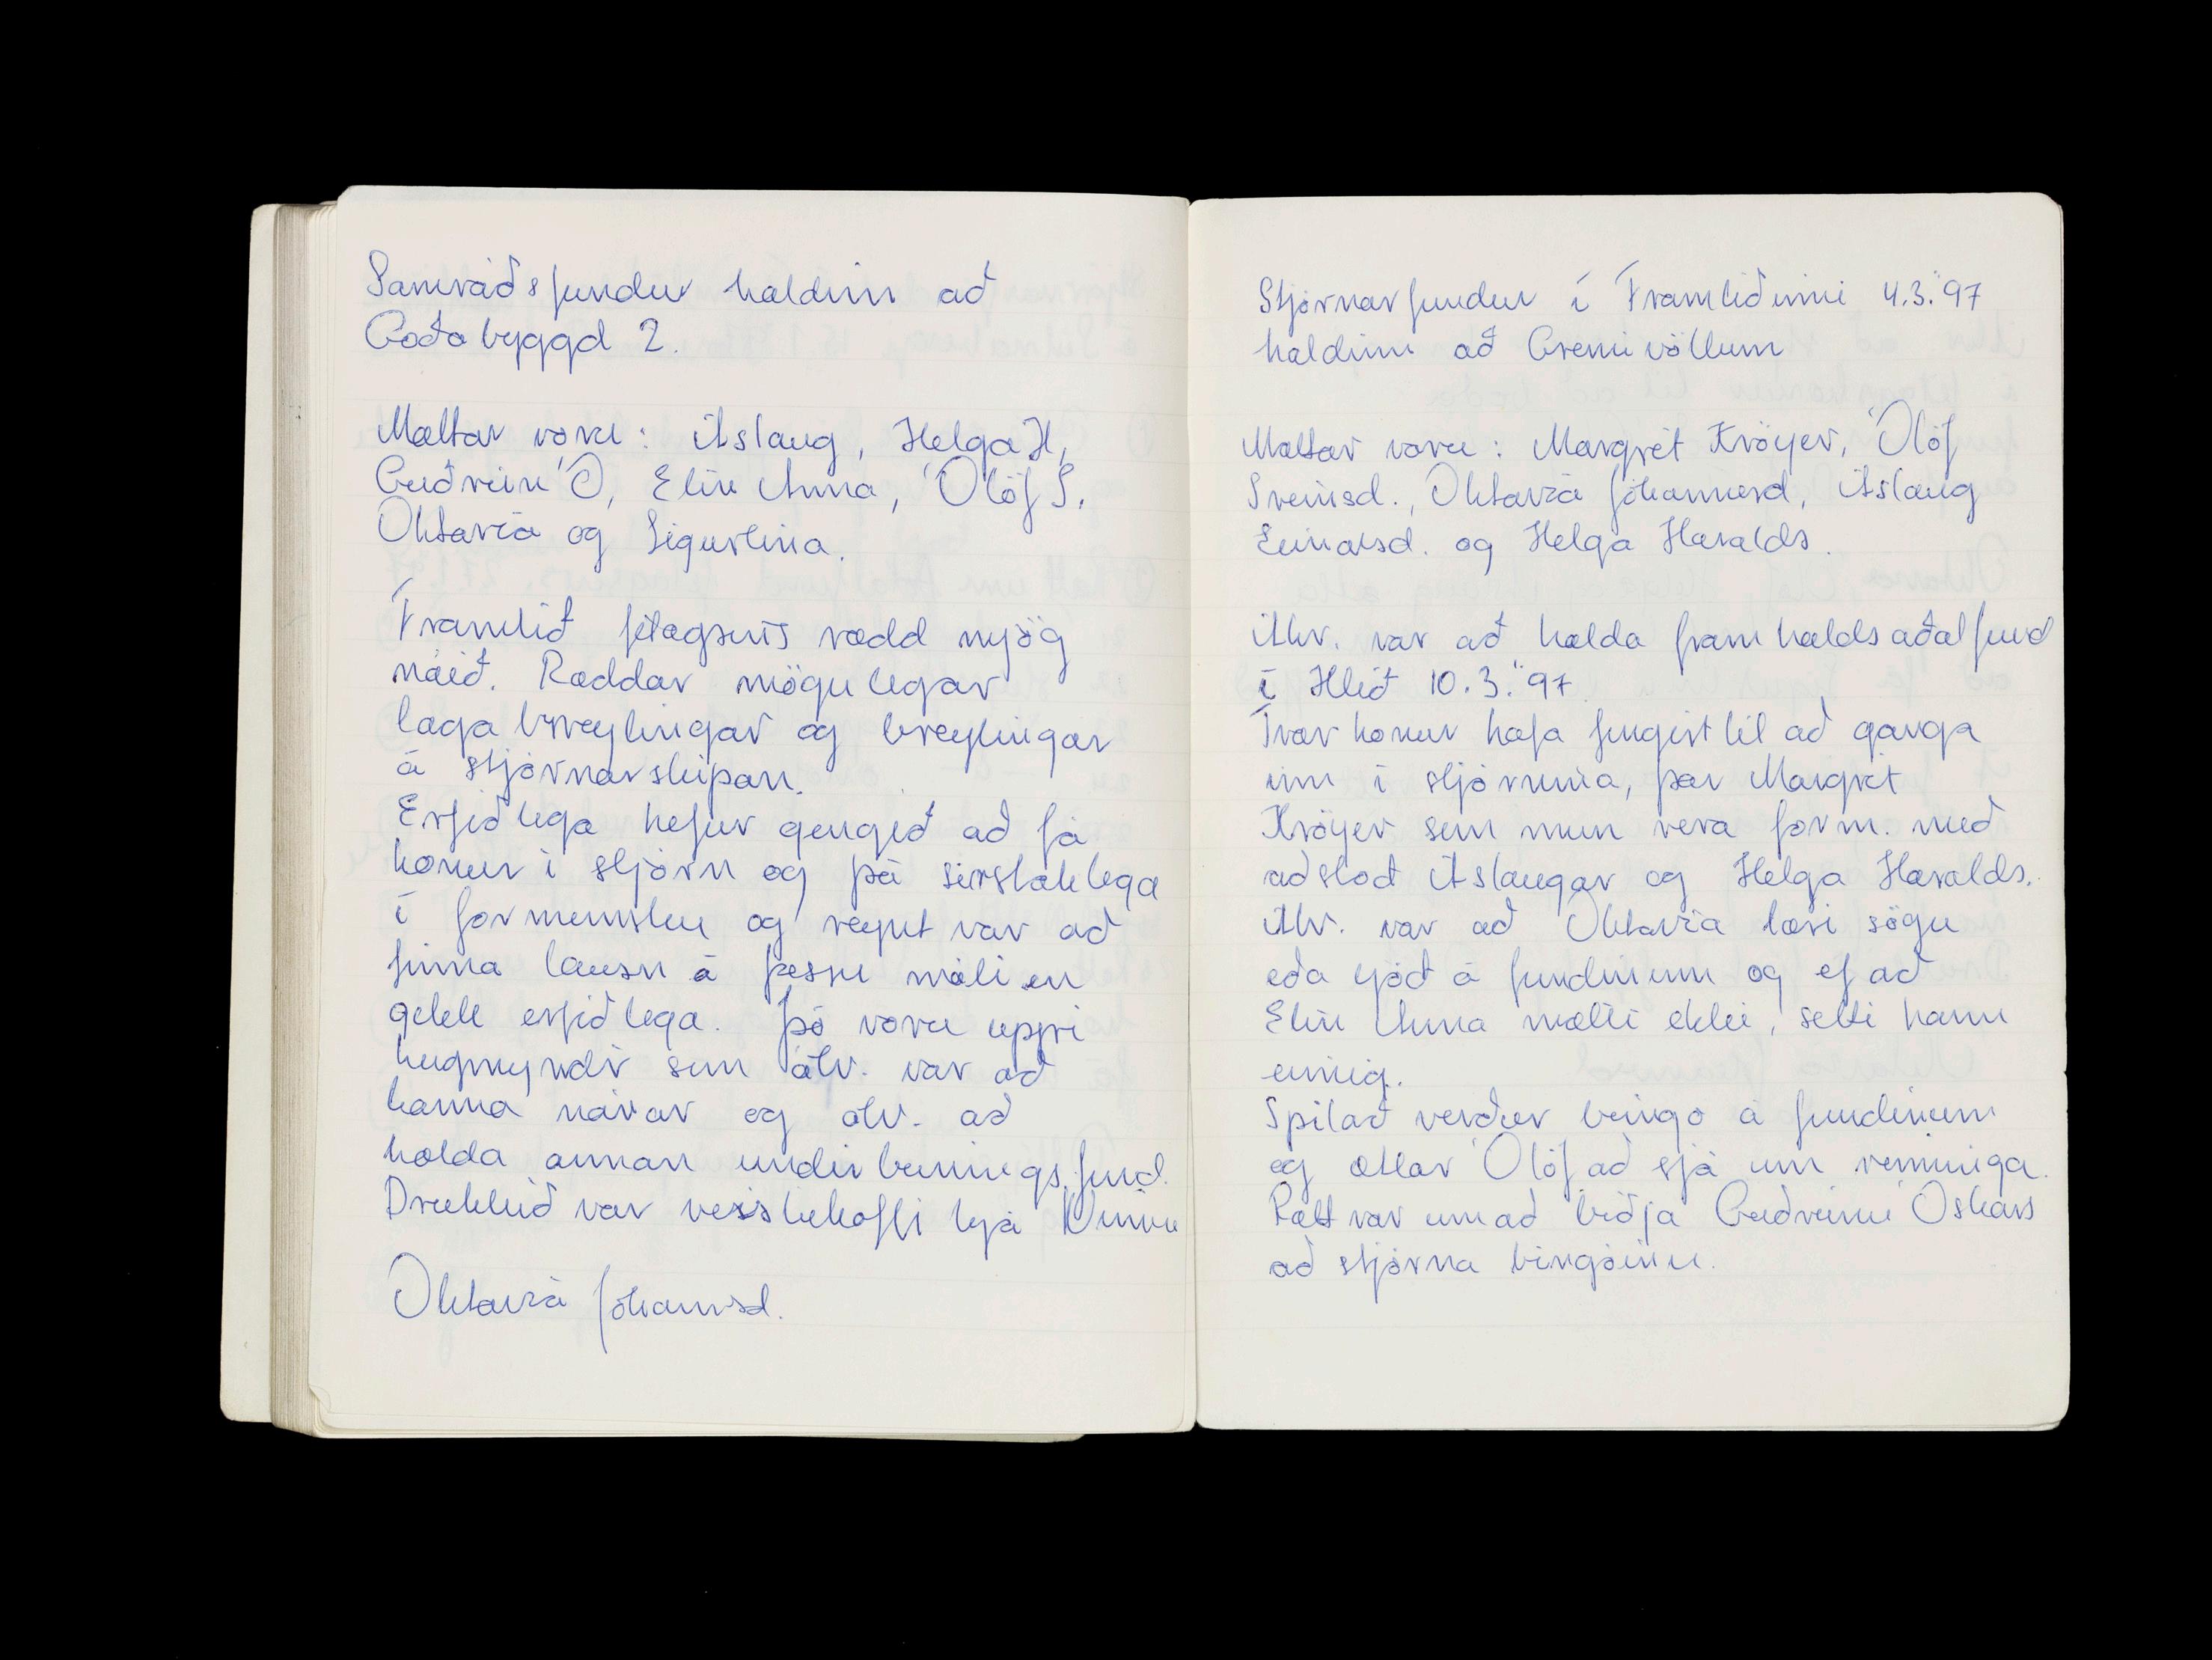 Samráðsfundur haldinn að
Goðabyggð 2.
Mættar voru: Áslaug, Helga H,
Guðrún Ó, Elín Anna, Ólöf S,
Oktavía og Sigurlína.
Framtíð félagsins rædd mjög
náið. Ræddar mögulegar
lagabreytingar og breytingar
á stjórnarskipan.
Erfiðlega hefur gengið að fá
konur í stjórn og þá sérstaklega
í formennsku og reynt var að
finna lausn á þessu máli en
gekk erfiðlega. Þó voru uppi
hugmyndir sem ákv. var að
kanna nánar og ákv. að
halda annan undirbúningsfund.
Drukkið var veislukaffi hjá
Oktavía Jóhannsd.
Stjórnarfundur í Framtíðinni 4.3.'97
haldinn að Grenivöllum
Mættar voru: Margrét Kröyer, Ólöf
Sveinsd., Oktavía Jóhannesd, Áslaug
Einarsd. og Helga Haralds.
Ákv. var að halda framhaldsaðalfund
í Hlíð 10.3.'97
Tvær konur hafa fengist til að ganga
inn í stjórnina, þær Margrét
Kröyer sem mun vera form. með
aðstoð Áslaugar og Helga Haralds.
Ákv. var að Oktavía læsi sögu
eða ljóð á fundinum og ef að
Elín Anna mætti ekki, setti hann
einnig.
Spilað verður bingo á fundinum
og ætlar Ólöf að sjá um vinninga.
Rætt var um að biðja Guðrúnu Óskars
að stjórna bingóinu.